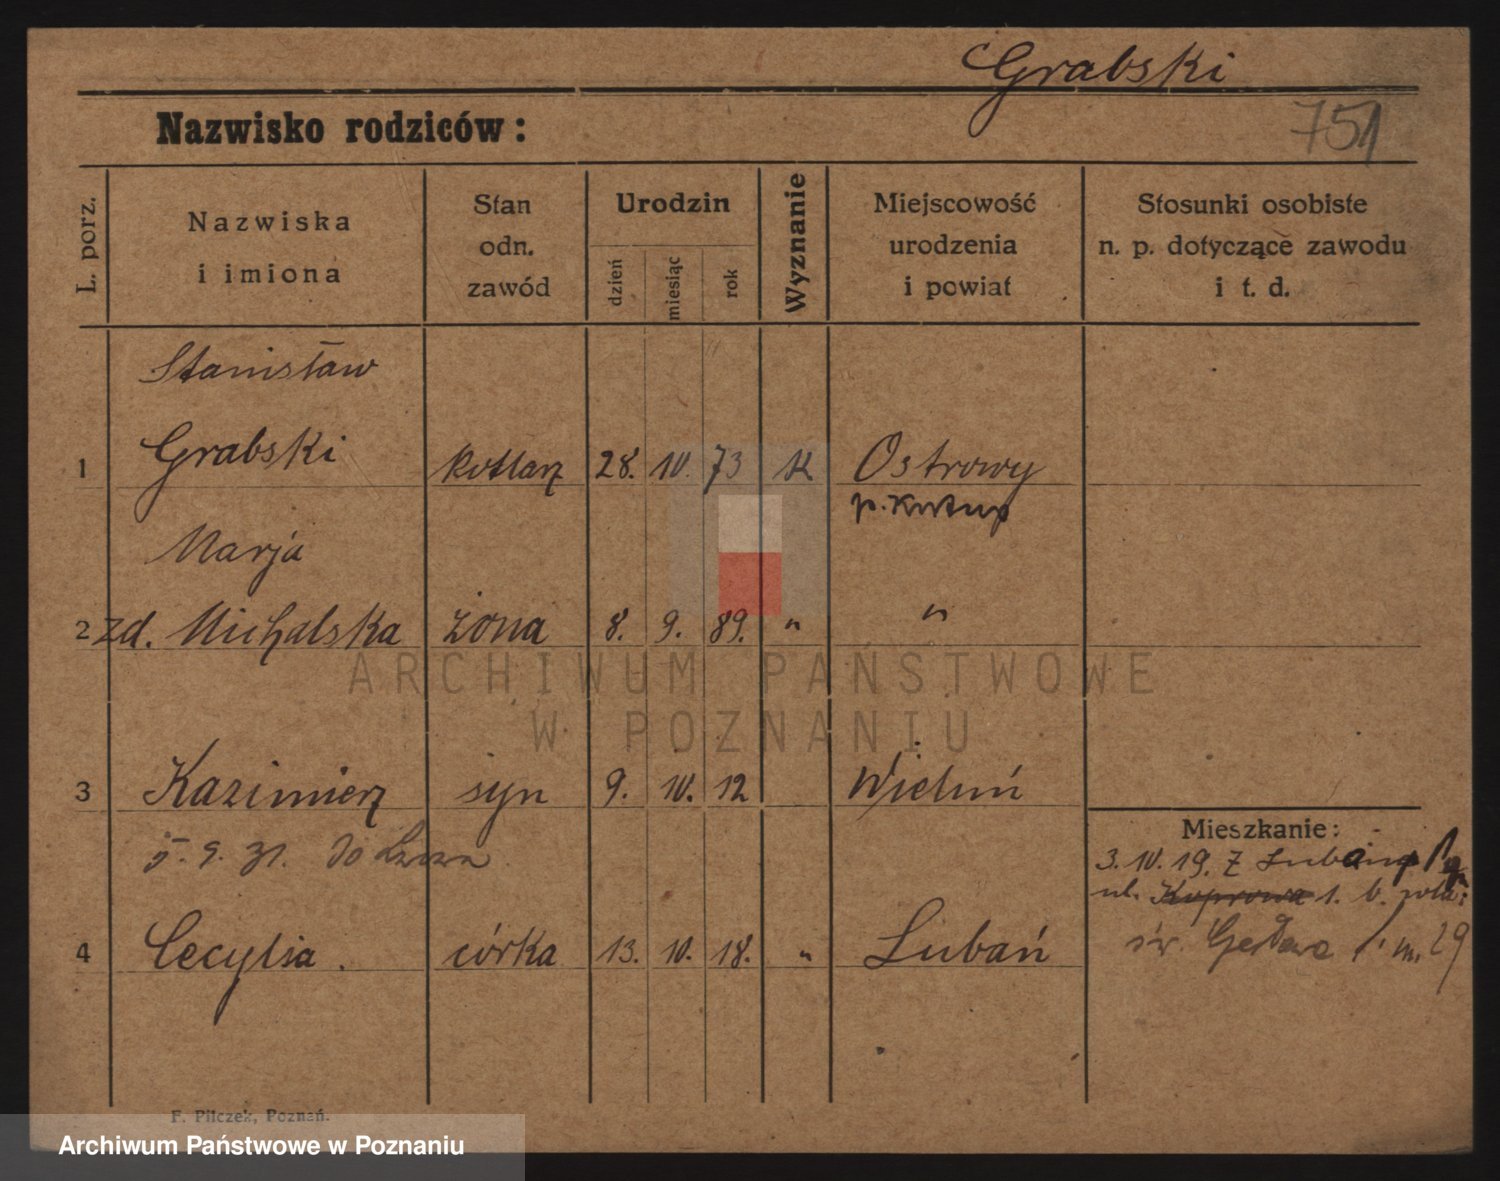 Grabski
751
Nazwisko rodziców:
L. porz.
Nazwiska
i imiona
Stan
odn.
zawód
Urodzin
dzień
miesiąc
rok
Wyznanie
Miejscowość
urodzenia
i powiat
Stosunki osobiste
n. p. dotyczące zawodu
i t. d.
Stanisław
1 Grabski kotlarz 28. 10. 73 K Ostrowy
p.
Marja
2 zd. Michalska żona 8. 9. 89. " "
3 Kazimierz syn 9. 10. 12 Wieluń
5. 9. 31. do
Mieszkanie:
3. 10. 19. z Lubania
ul. Koprowa 1. b.
4 Cecylia. córka 13. 10. 18. " Lubań
św. m. 29
ARCHIWUM PAŃSTWOWE
W POZNANIU
F. Pilczek, Poznań.
Archiwum Państwowe w Poznaniu